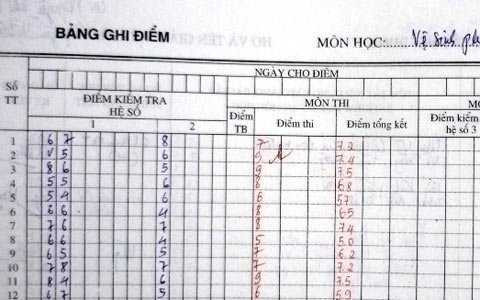 BẢNG GHI ĐIỂM
MÔN HỌC: Vệ sinh
NGÀY CHO ĐIỂM
Số TT
ĐIỂM KIỂM TRA HỆ SỐ
MÔN THI
1 2
Điểm TB Điểm thi Điểm tổng kết Điểm kiểm hệ số 3
1 6 7 8 7 7.2
2 5 6 9 7.4
3 8 6 5 9 7.5
4 5 5 6 8 6.8
5 5 4 6 6 5.7
6 6 6 4 8 6.5
7 7 6 7 8 7.4
8 6 6 4 5 5.0
9 6 5 5 7 6.2
10 7 8 7 7 7.2
11 8 4 6 9 7.5
12 6 7 5 6 5.9